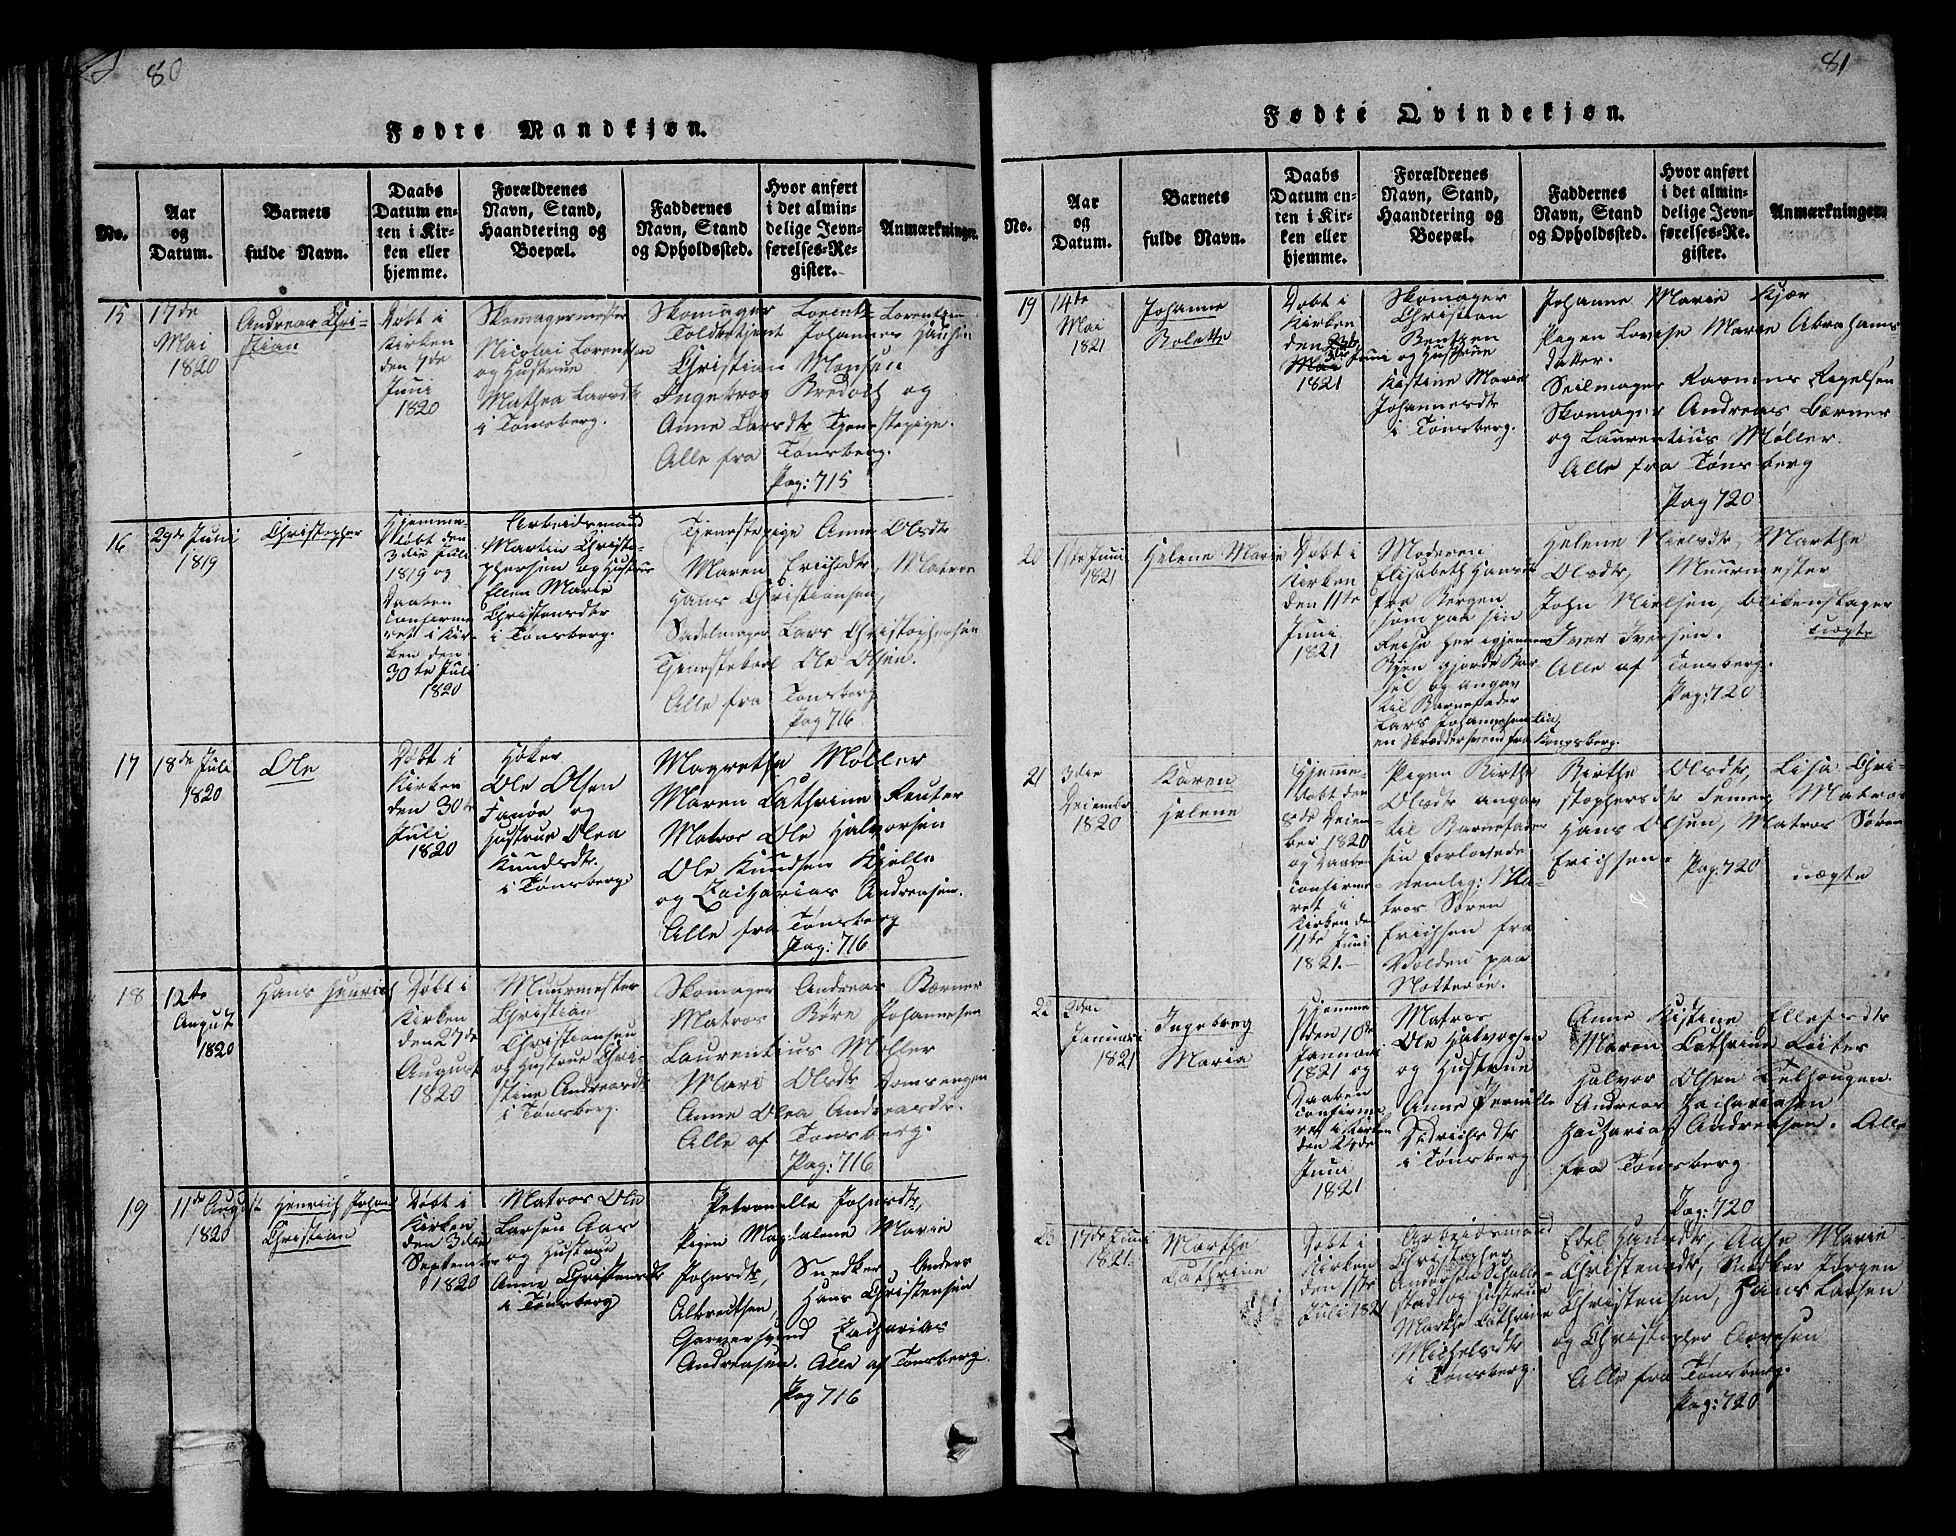 80
Fødte Mandkjøn.
No.
Aar
og
Datum.
Barnets
fulde Navn.
Daabs
Datum en-
ten i Kir-
ken eller
hjemme.
Forældrenes
Navn, Stand,
Haandtering og
Boepæl.
Faddernes
Navn, Stand
og Opholdssted.
Hvor anført
i det almin-
delige Jevn-
førelses-Re-
gister.
Anmærkninger.
15
17de
Mai
1820
Andreas Chri-
stian
Døbt i
Kirken
den 7de
Juni
1820
Skomagermester
Nicolai Lorentsen
og Hustrue
Mathea Larsdtr
i Tønsberg.
Skomager Lorents Lorentsen
Toldbetjent Johannes Hansen
Christian Monsen
Ingebrog Bredoch og
Anne Larsdtr Tjenstepige.
Alle fra Tønsberg.
Pag: 715
16
29de Juni
1819
Christopher
Hjemme-
døbt den
3die Juli
1819 og
Daaben
Confirme-
ret i Kir-
ken den
30te Juli
1820
Arbeidsmand
Martin Christo-
phersen og Hustrue
Ellen Marie
Christensdtr
i Tønsberg.
Tjenestepige Anne Olsdtr
Maren Erichsdtr, Matros
Hans Christiansen,
Sadelmager Lars Christophersen
Tjenestekarl Ole Olsen.
Alle fra Tønsberg
Pag 716
17
18de Juli
1820
Ole
Døbt i
Kirken
den 30te
Juli
1820
Høker
Ole Olsen
Fanøe og
Hustrue Olea
Knudsdtr.
i Tønsberg.
Magrethe Møller
Maren Cathrine Reuter
Matros Ole Halvorsen
Ole Knudsen Kjelle
og Zacharias Andreasen.
Alle fra Tønsberg
Pag: 716
18
12te
August
1820
Hans Henrich
Døbt i
Kirken
den 27de
August
1820
Muurmester
Christian
Christiansen
og Hustrue Chri-
stine Andreasdtr
i Tønsberg.
Skomager Andreas Børner
Matros Børe Johannesen
Laurentius Møller
Mari Olsdtr Domsengen
Anne Olea Andreasdtr.
Alle af Tønsberg.
Pag: 716
19
11de August
1820
Henrich Johan
Christian
Døbt i
Kirken
den 3die
September
1820
Matros Ole
Larsen Aas
og Hustrue
Anne Christensdtr
i Tønsberg
Petronelle Johnsdtr,
Pigen Magdalene Marie
Johnsdtr, Snedker Anders
Albretsen, Hans Christensen
Garversvend Zacharias
Andreasen. Alle af Tønsberg.
Pag 716
81
Fødte Qvindekjøn.
No.
Aar
og
Datum.
Barnets
fulde Navn.
Daabs
Datum en-
ten i Kir-
ken eller
hjemme.
Forældrenes
Navn, Stand,
Haandtering og
Boepæl.
Faddernes
Navn, Stand
og Opholdssted.
Hvor anført
i det almin-
delige Jevn-
førelses-Re-
gister.
Anmærkninger.
19
14de
Mai
1821
Johanne
Bolette
Døbt i
Kirken
den
3die Juni
Mai
1821
Skomager
Christian
Bentzen
og Hustrue
Kistine Marie
Johannesdtr
i Tønsberg.
Johanne Marie Kjær
Pigen Lovise Marie Abrahams
datter.
Seilmager Rasmus Ragelsen
Skomager Andreas Børner
og Laurentius Møller.
Alle fra Tønsberg
Pag 720
20
11te Juni
1821
Helene Marie
Døbt i
Kirken
den 11te
Juni
1821
Moderen
Elisabeth Hansdtr
fra Bergen
som paa sin
Reise her igjennem
Byen gjorde Bar-
sel og angav
til Barnefader
Lars Johannesen
en Skræddersvend fra Kongsberg.
Helene Nielsdtr, Marthe
Olsdtr, Muurmester
John Nielsen, Blikenslager
Iver Iversen.
Alle af Tønsberg.
Pag: 720
uægte
21
3die
Decembr
1820
Karen
Helene
Hjemme-
døbt den
8de Decem-
ber 1820
og Daaben
Confirme-
ret i
Kirken den
11te Juni
1821.
Pigen Birthe
Olsdtr angav
til Barnefader
sin forlovede
nemlig: Ma-
tros Søren
Erichsen fra
Bolden paa
Nøtterøe.
Birthe Olsdtr, Lisa Chri-
stophersdtr Matros
Hans Olsen, Matros Søren
Erichsen.
Pag: 720
uægte
22
2den
Januari
1821
Ingeborg
Maria
Hjemme
den 10de
Januari
1821 og
Daaben
Confirme-
ret i Kirken
den
Juni
1821
Matros
Ole Halvorsen
og Hustrue
Anne Pernille
Didrichsdtr
i Tønsberg
Anne Kistine Ellefsdtr
Maren Cathrine Leiter
Halvor Olsen
Andreas Zachariasen
Zacharias Andreasen. Alle
fra Tønsberg
Pag: 720
23
17de Juni
1821.
Marthe
Cathrine
Døbt i
Kirken
den 1ste
Juli 1821
Arbeidsmand
Christopher
Andersen
og Hustrue
Marthe Cathrine
Michelsdtr
i Tønsberg.
Edel Hansdtr, Aase Marie
Christensdtr, Snedker Jørgen
Christensen, Hans Larsen
og Christopher Arvesen
Alle fra Tønsberg.
Pag: 720